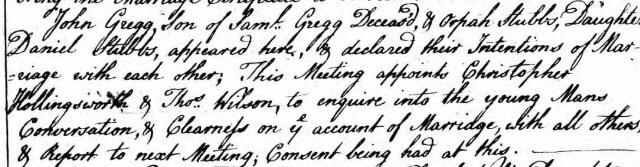 John Gregg, Son of Saml. Gregg Deceasd, & Orpah Stubbs, Daughter
Daniel Stubbs, appeared here, & declared their Intentions of Mar-
-riage with each other; This Meeting appoints Christopher
Hollingsworth & Thos. Wilson, to enquire into the young Mans
Conversation, & Clearness on ye account of Marridge, with all others,
& Report to next Meeting; Consent being had at this.